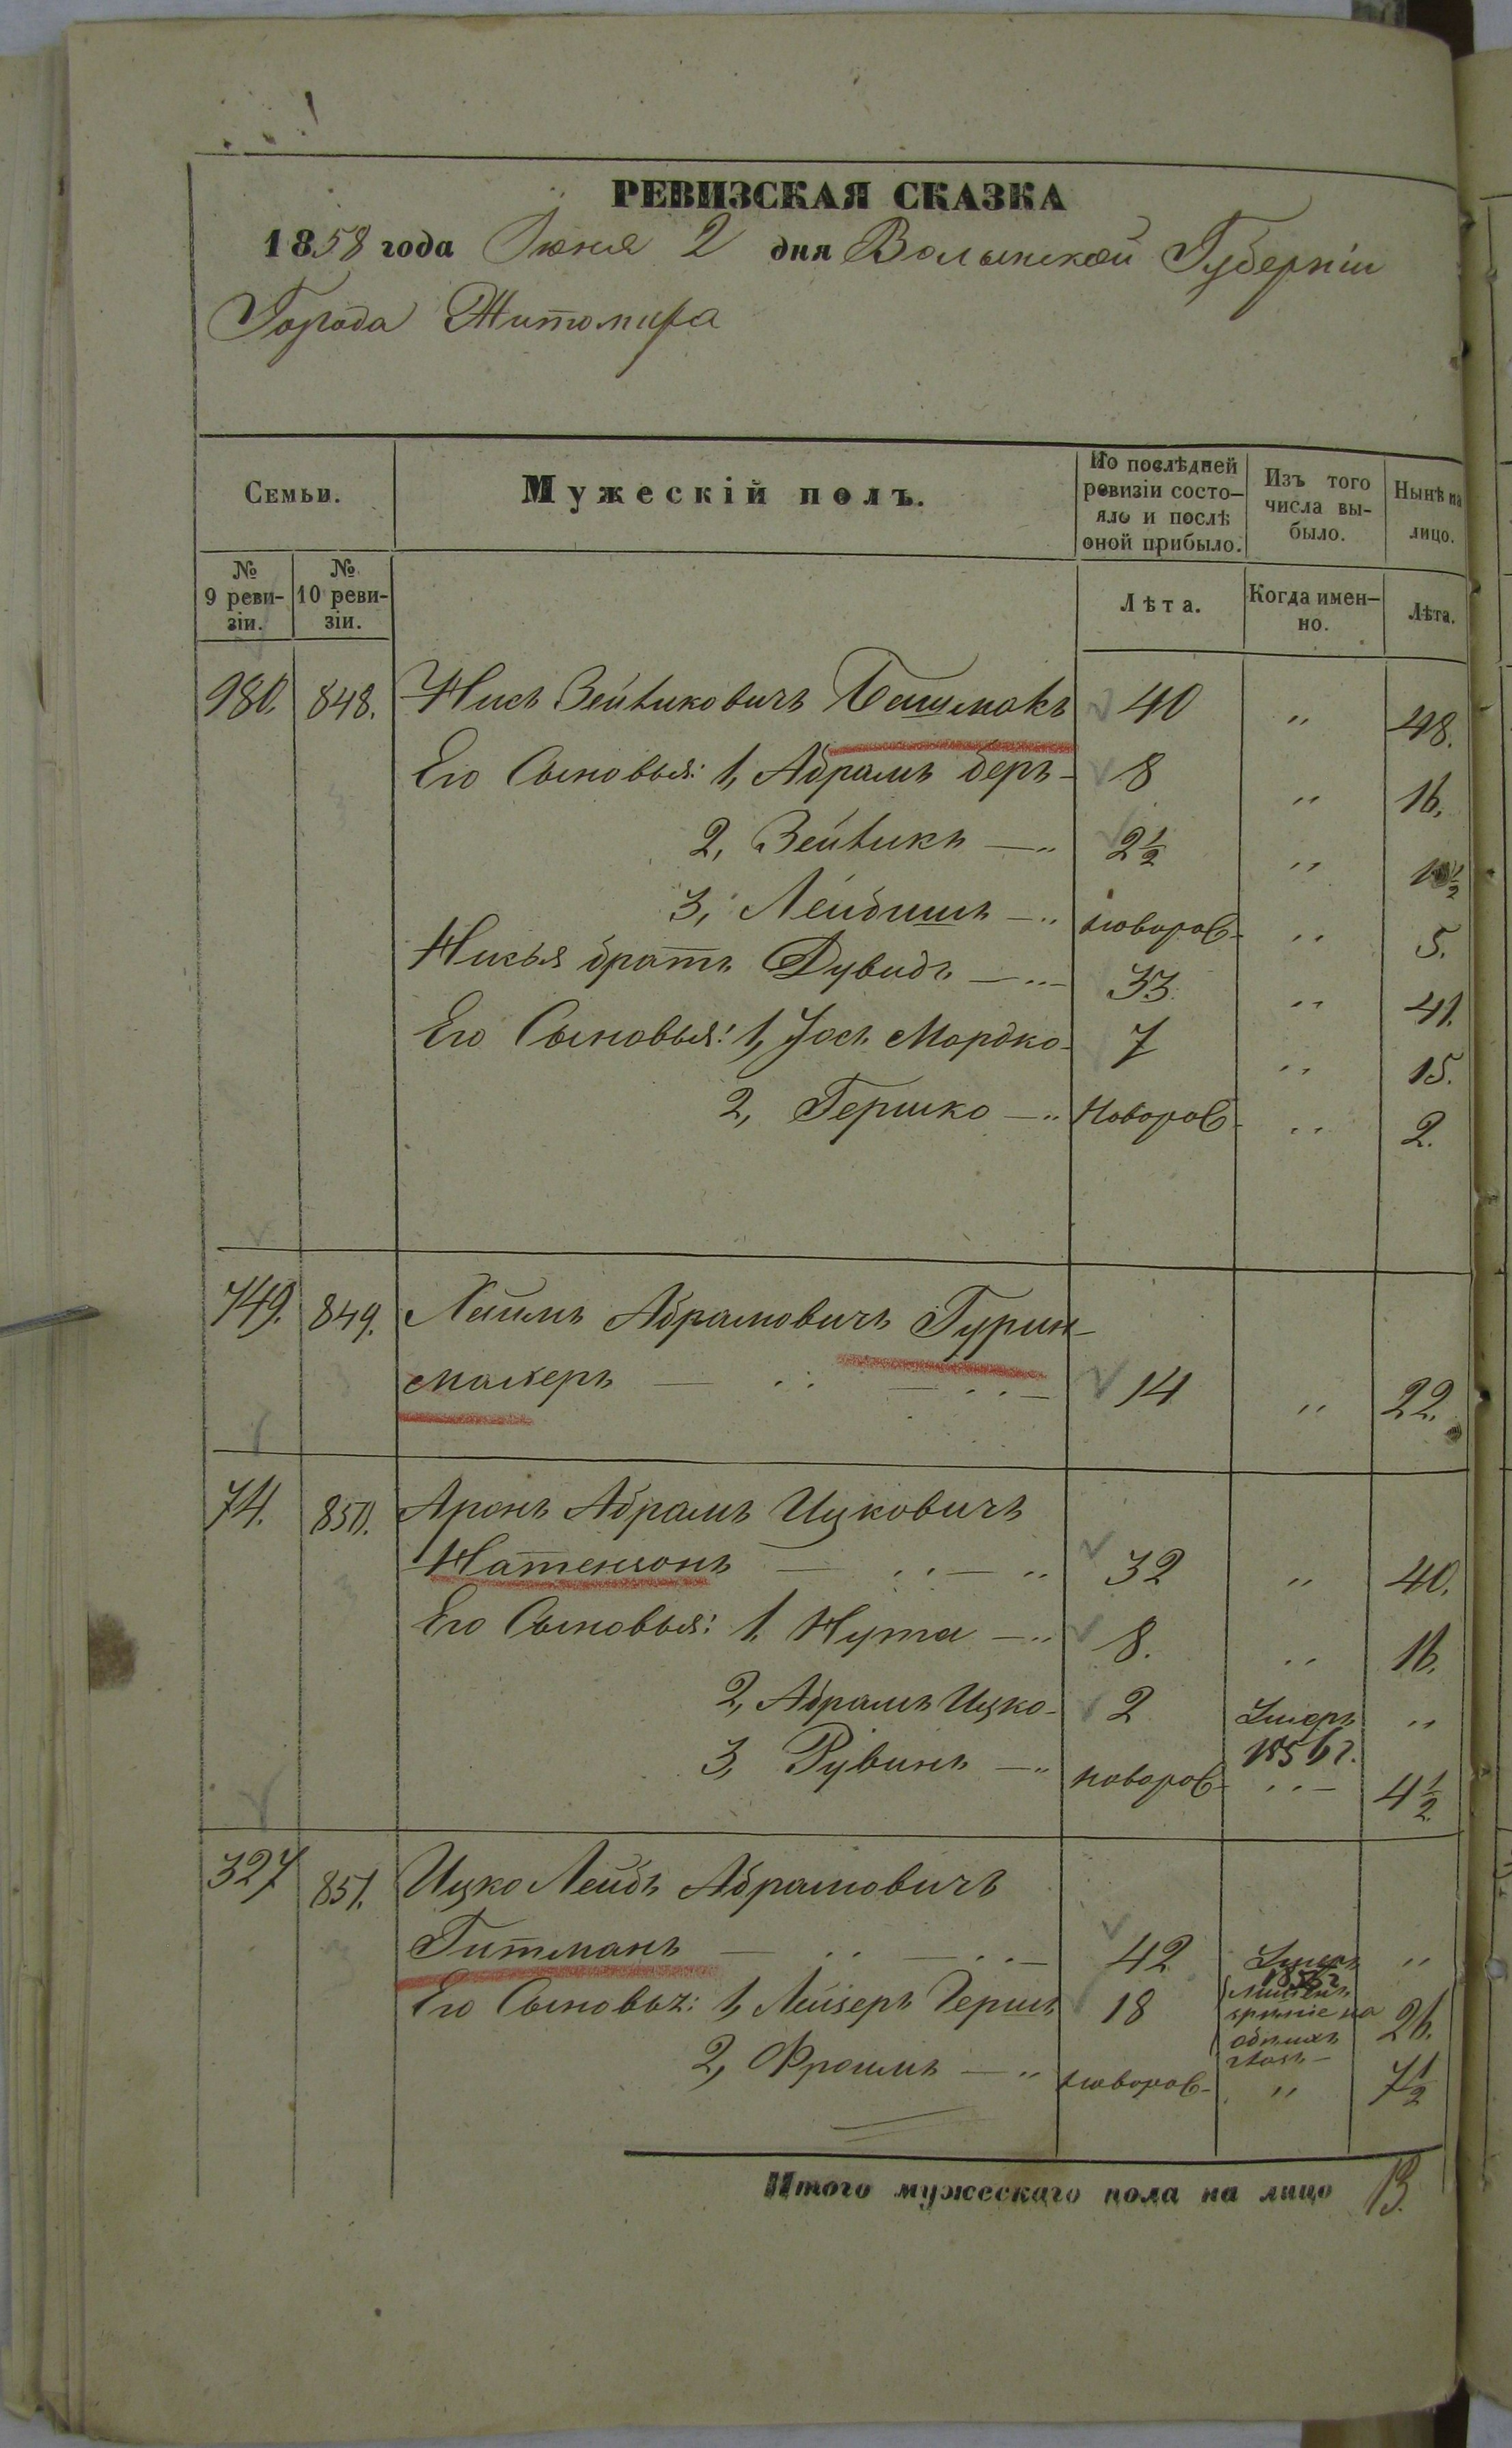 РЕВИЗСКАЯ СКАЗКА
1858 года Июня 2 дня Волынской Губерніи
Города Житомира
Семьи. Мужескій полъ. По послѣдней ревизіи состо- Изъ того Нынѣ на
яло и послѣ числа вы- лицо.
оной прибыло. было.
№ 9 реви- зіи. № 10 реви- зіи. Лѣта. Когда имен- но. Лѣта.
980. 848. Нисъ Зейликовичъ Башмакъ 40 " 48.
Его Сыновья: 1, Абрамъ Беръ - 8 " 16.
2, Зейликъ — " 2½ "
3, Лейбишъ — " новорож- " 5.
Нисья братъ Дувидъ — " — 33. " 41.
Его Сыновья: 1, Іось Мордко - 7 " 15.
2, Гершко — " Новорож- " 2.
749. 849. Хаимъ Абрамовичъ Гурин-
махеръ — " — " — 14 " 22.
74. 850. Аронъ Абрамъ Ицковичъ
Натензонъ — " — " 32 " 40.
Его Сыновья: 1, Нута — " 8. " 16.
2, Абрамъ Ицко - 2 Умеръ "
1856 г.
3, Рувинъ — " новорож- " — 4½
327 851. Ицко Лейбъ Абрамовичъ
Гитманъ — " — " — 42 Умеръ "
185 г.
Его Сыновья: 1, Лейзеръ Гершъ 18 зрѣніе на 26.
2, Фроимъ — " новорож- " 7½
Итого мужескаго пола на лицо 13.